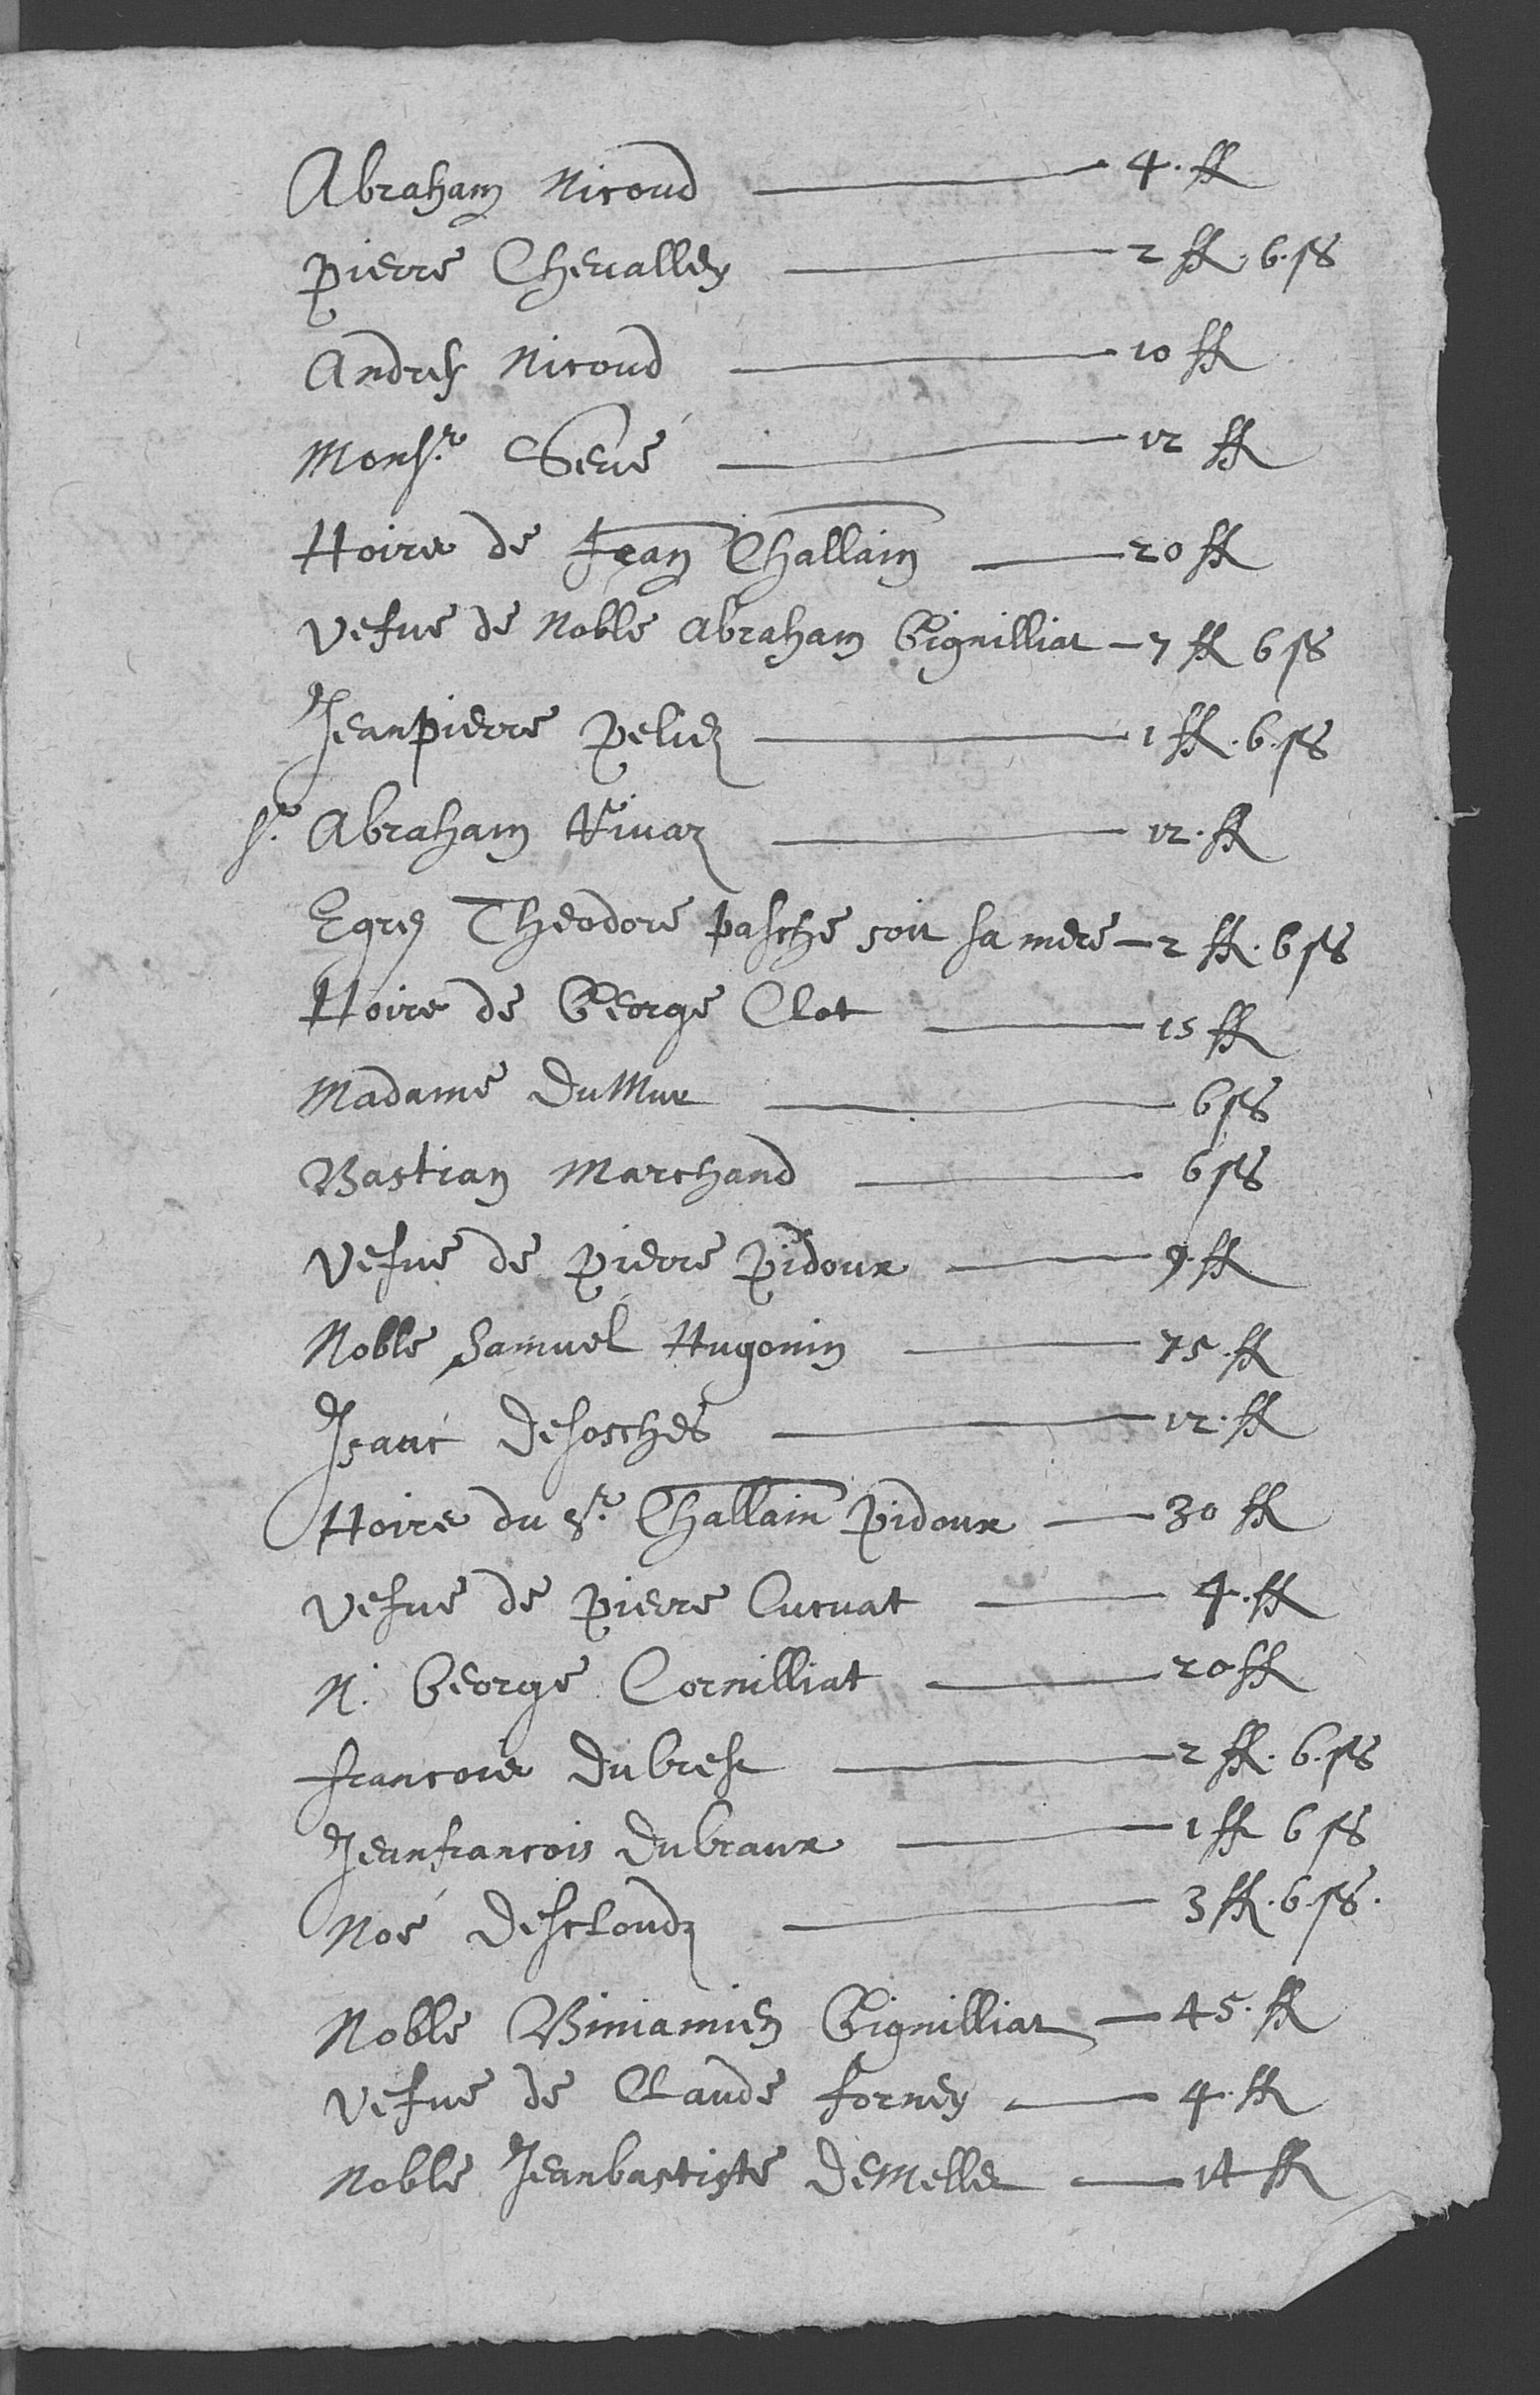 Abraham Nicoud — 4. ff
pierre Chevalley — 2 ff. 6. ss
Andrey Nicoud — 10 ff
Monsr. Gené — 12 ff
Hoirs de Jean Challain — 20 ff
vefue de Noble Abraham Gignilliat — 7 ff 6 ss
Jeanpierre — 1 ff. 6. ss
sr. Abraham Rivaz — 12. ff
Egre Theodore pasche soit sa mere — 2 ff. 6 ss
Hoirs de George Clot — 15 ff
Madame DuMur — 6 ss
Bastian Marchand — 6 ss
vefue de pierre pidoux — 9. ff
Noble Samuel Hugonin — 75. ff
Isaac Desosches — 12. ff
Hoirs du Sr. Challain pidoux — 30 ff
vefue de pierre Cucuat — 4. ff
N. George Cornilliat — 20 ff
francois Dubrest — 2 ff. 6. ss
Jeanfrancois Dubraux — 1 ff 6 ss
Noé Descloudz — 3 ff. 6 ss.
Noble Biniamin Gignilliat — 45. ff
vefue de Claude forney — 4. ff
Noble Jeanbastiste DeMelles — 14 ff